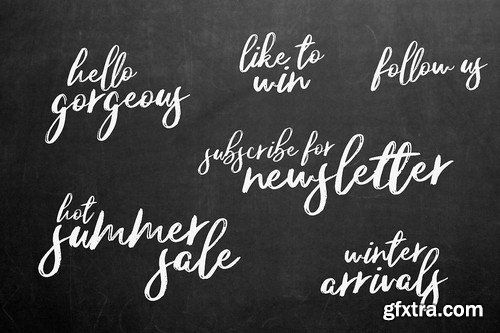 hello
gorgeous
like to
win
follow us
subscribe for
newsletter
hot
summer
sale
winter
arrivals
gfxtra.com